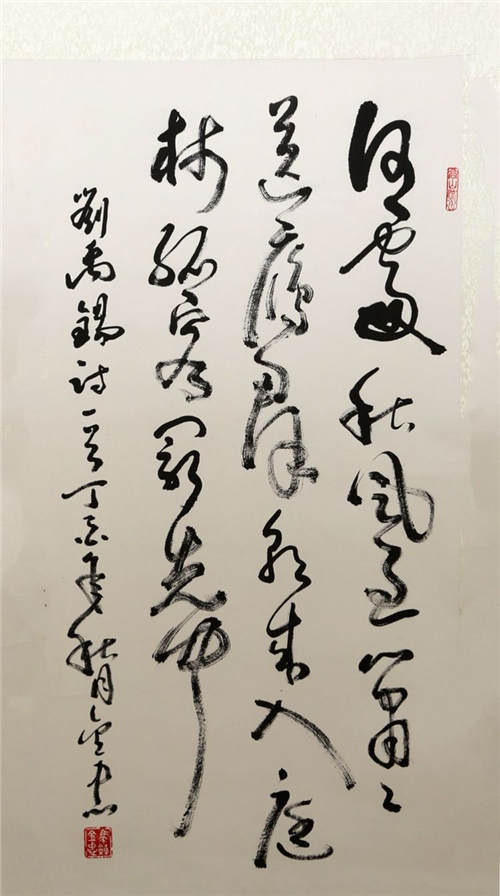 何處秋風至蕭々
送雁群朝来入庭
树孤客最先聞
劉禹錫詩一首丁亥年秋月金忠